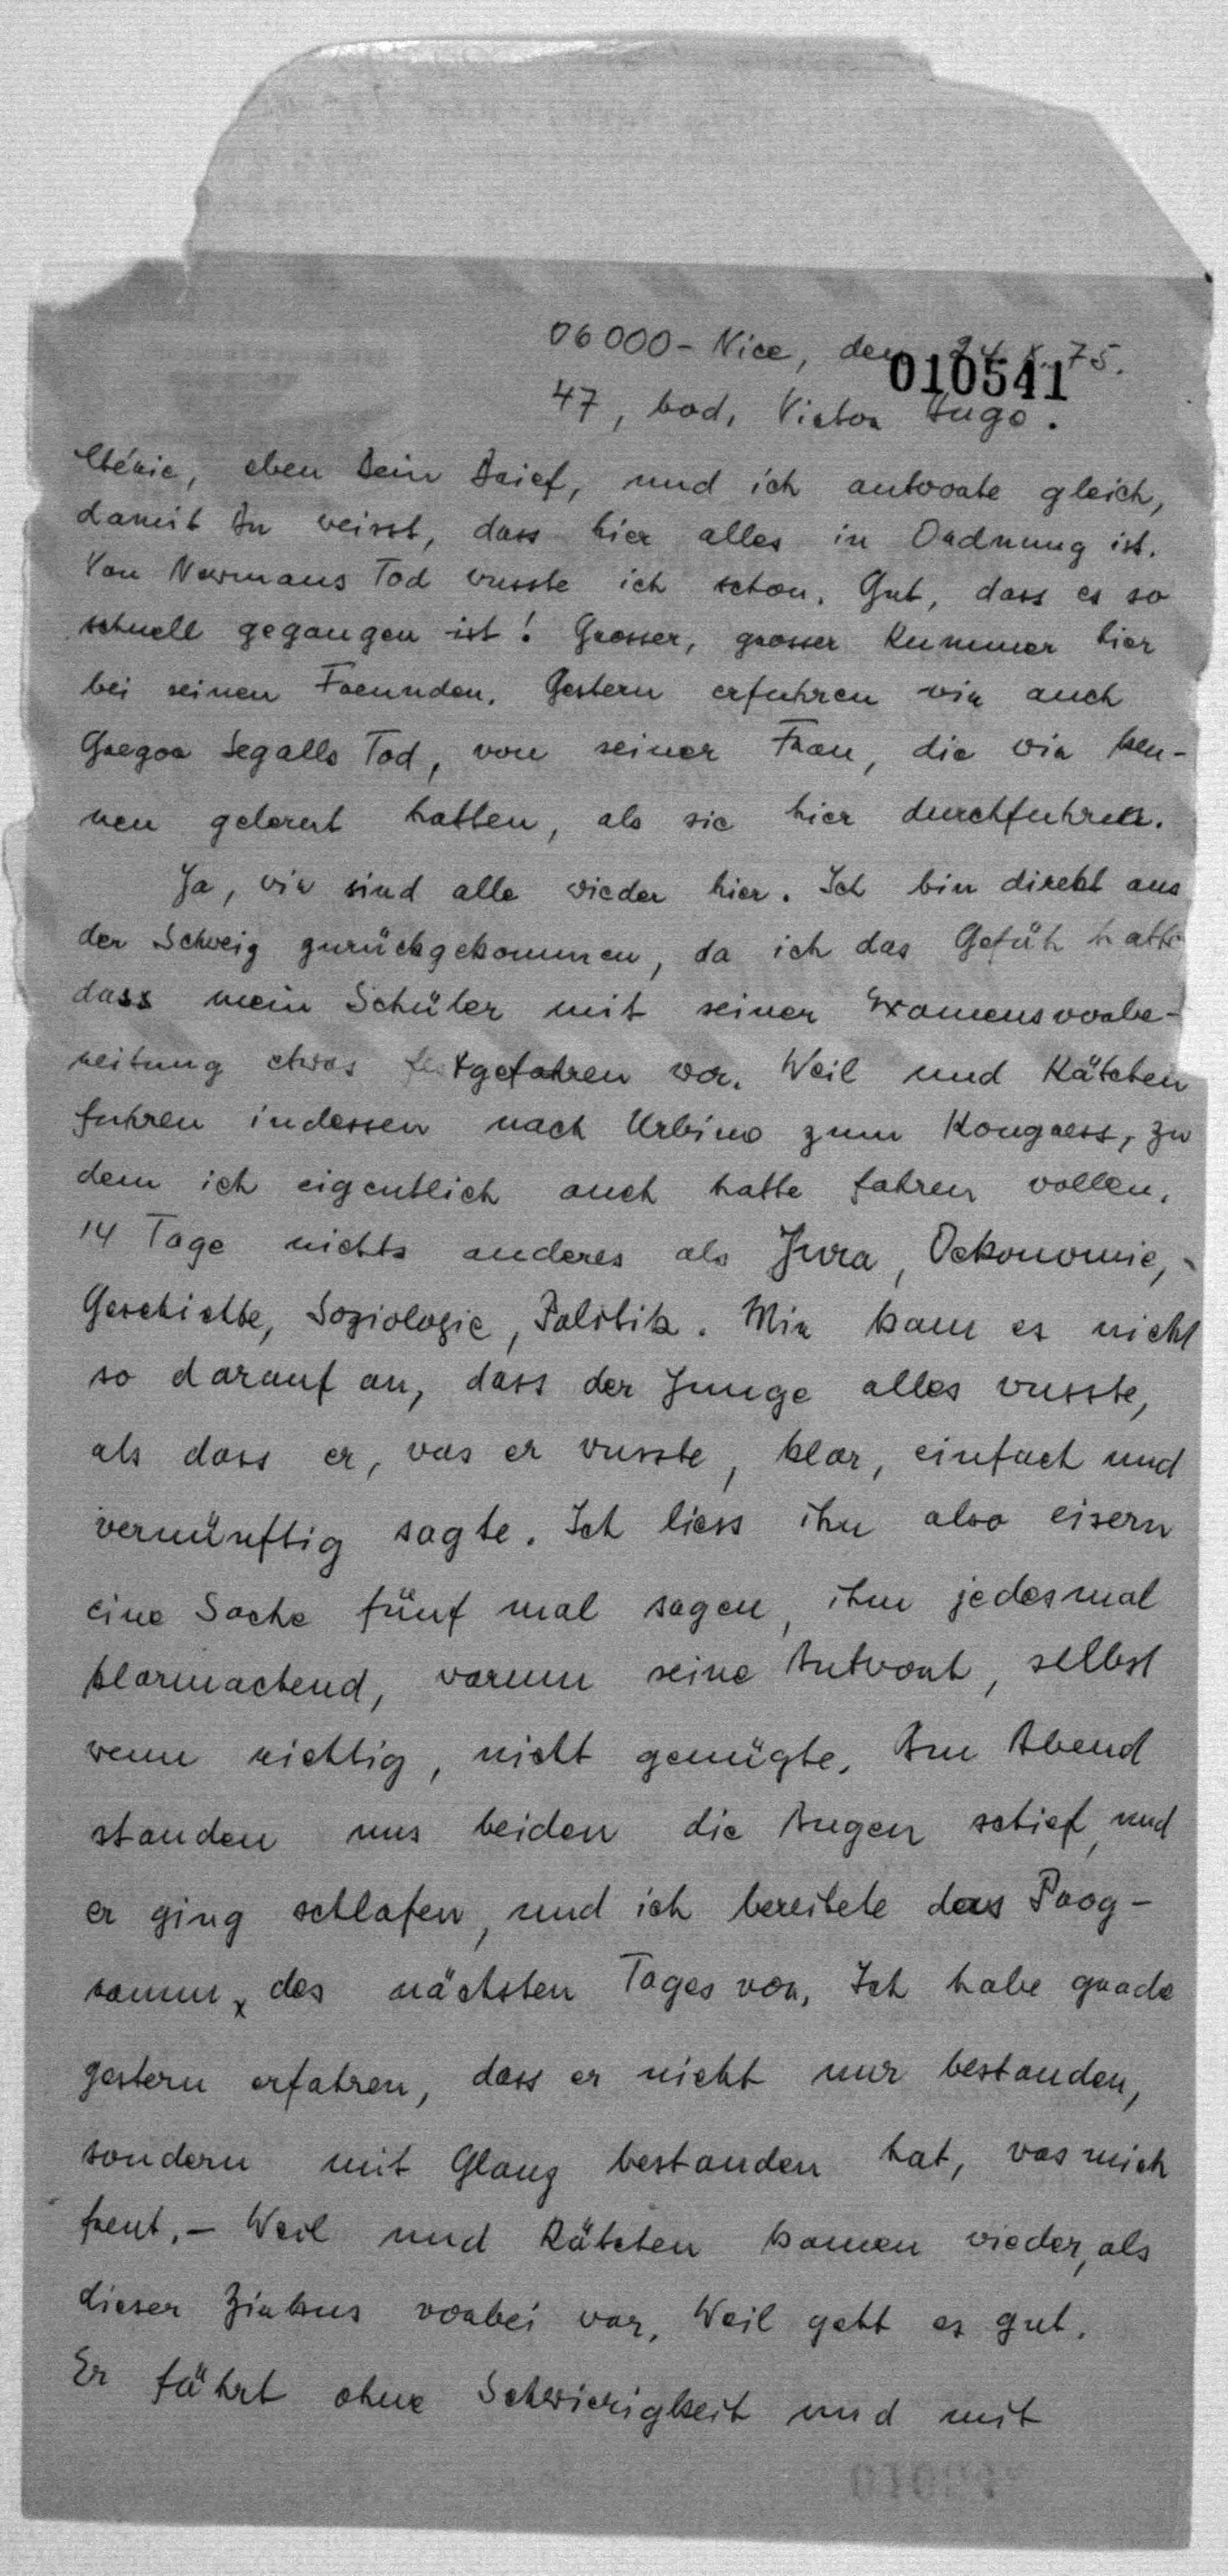 06000 - Nice, den 24. X. 75.
010541
47, bvd. Victor Hugo.
Chérie, eben Dein Brief, und ich antworte gleich,
damit Du weisst, dass hier alles in Ordnung ist.
Von Normans Tod wusste ich schon. Gut, dass es so
schnell gegangen ist! Grosser, grosser Kummer hier
bei seinen Freunden. Gestern erfuhren wir auch
Gregor Segalls Tod, von seiner Frau, die wir ken-
nen gelernt hatten, als sie hier durchfuhren.
Ja, wir sind alle wieder hier. Ich bin direkt aus
der Schweiz zurückgekommen, da ich das Gefüh hatte
dass mein Schüler mit seiner Examensvorbe-
reitung etwas festgefahren war. Weil und Kätchen
fuhren indessen nach Urbino zum Kongress, zu
dem ich eigentlich auch hatte fahren wollen.
14 Tage nichts anderes als Jura, Oekonomie,
Geschichte, Soziologie, Politik. Mir kam es nicht
so darauf an, dass der Junge alles wusste,
als dass er, was er wusste, klar, einfach und
vernünftig sagte. Ich liess ihn also eisern
eine Sache fünf mal sagen, ihm jedesmal
klarmachend, warum seine Antwort, selbst
wenn richtig, nicht genügte. Am Abend
standen uns beiden die Augen schief, und
er ging schlafen, und ich bereitete das Prog-
ramm des nächsten Tages vor. Ich habe grade
gestern erfahren, dass er nicht nur bestanden,
sondern mit Glanz bestanden hat, was mich
freut. - Weil und Kätchen kamen wieder, als
dieser Zirkus vorbei war. Weil geht es gut.
Er fährt ohne Schwierigkeit und mit